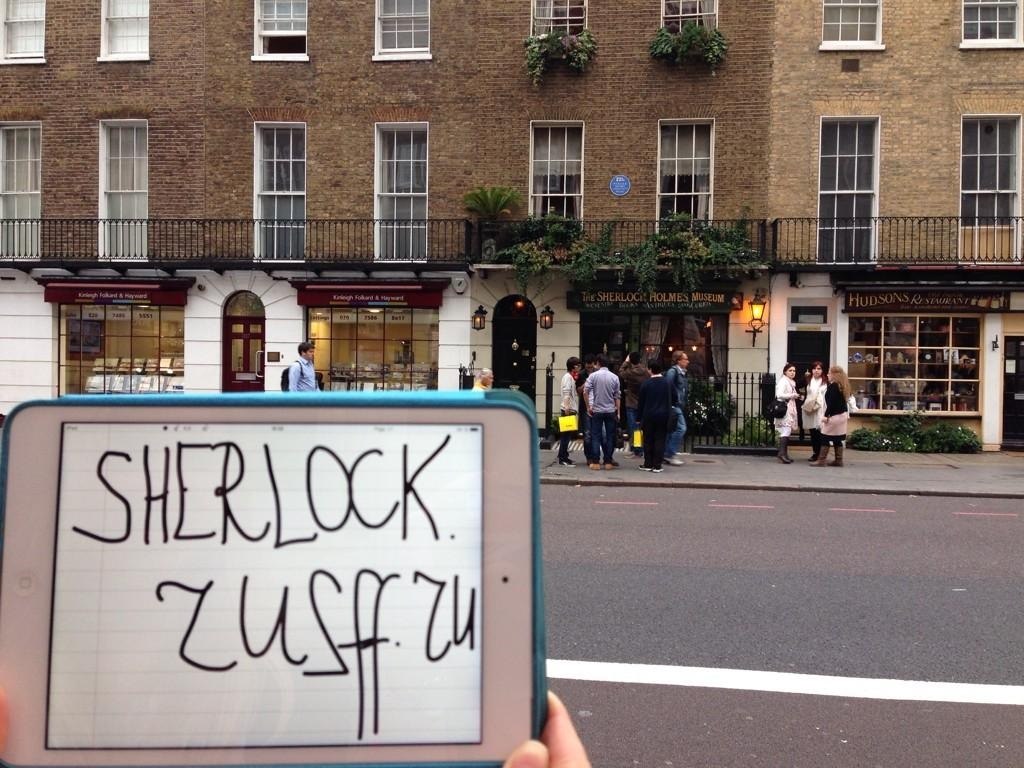 Kinleigh Folkard & Hayward
020 7486 5551
Kinleigh Folkard & Hayward
Lettings
THE SHERLOCK HOLMES MUSEUM
HUDSONS
RESTAURANT
iPad
SHERLOCK.
rusff.ru